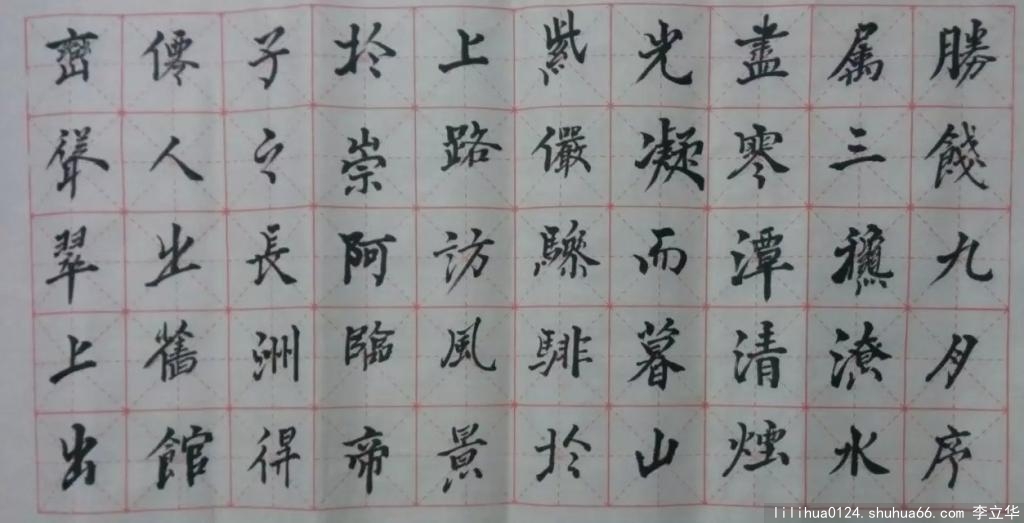 勝餞九月序
属三龝潦水
盡零潭清煙
光凝而暮山
紫儼驂騑於
上路訪風景
於崇阿臨帝
子之長洲得
僊人之舊館
巒聳翠上出
lilihua0124.shuhua66.com 李立华